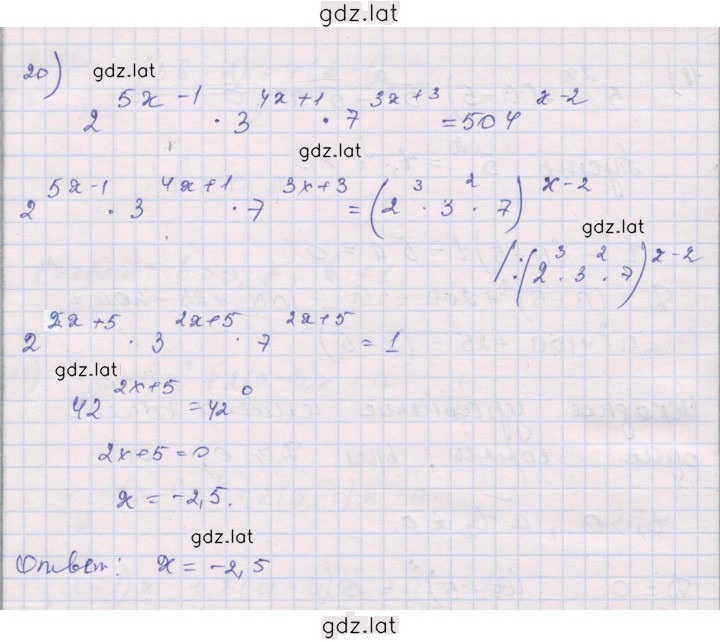 gdz.lat
20) gdz.lat
2^{5x-1} · 3^{4x+1} · 7^{3x+3} = 504^{x-2}
gdz.lat
2^{5x-1} · 3^{4x+1} · 7^{3x+3} = (2^3 · 3^2 · 7)^{x-2}
gdz.lat
/:(2^3 · 3^2 · 7)^{x-2}
2^{2x+5} · 3^{2x+5} · 7^{2x+5} = 1
gdz.lat
42^{2x+5} = 42^0
2x+5=0
x = -2,5.
gdz.lat
Ответ: x = -2,5
gdz.lat